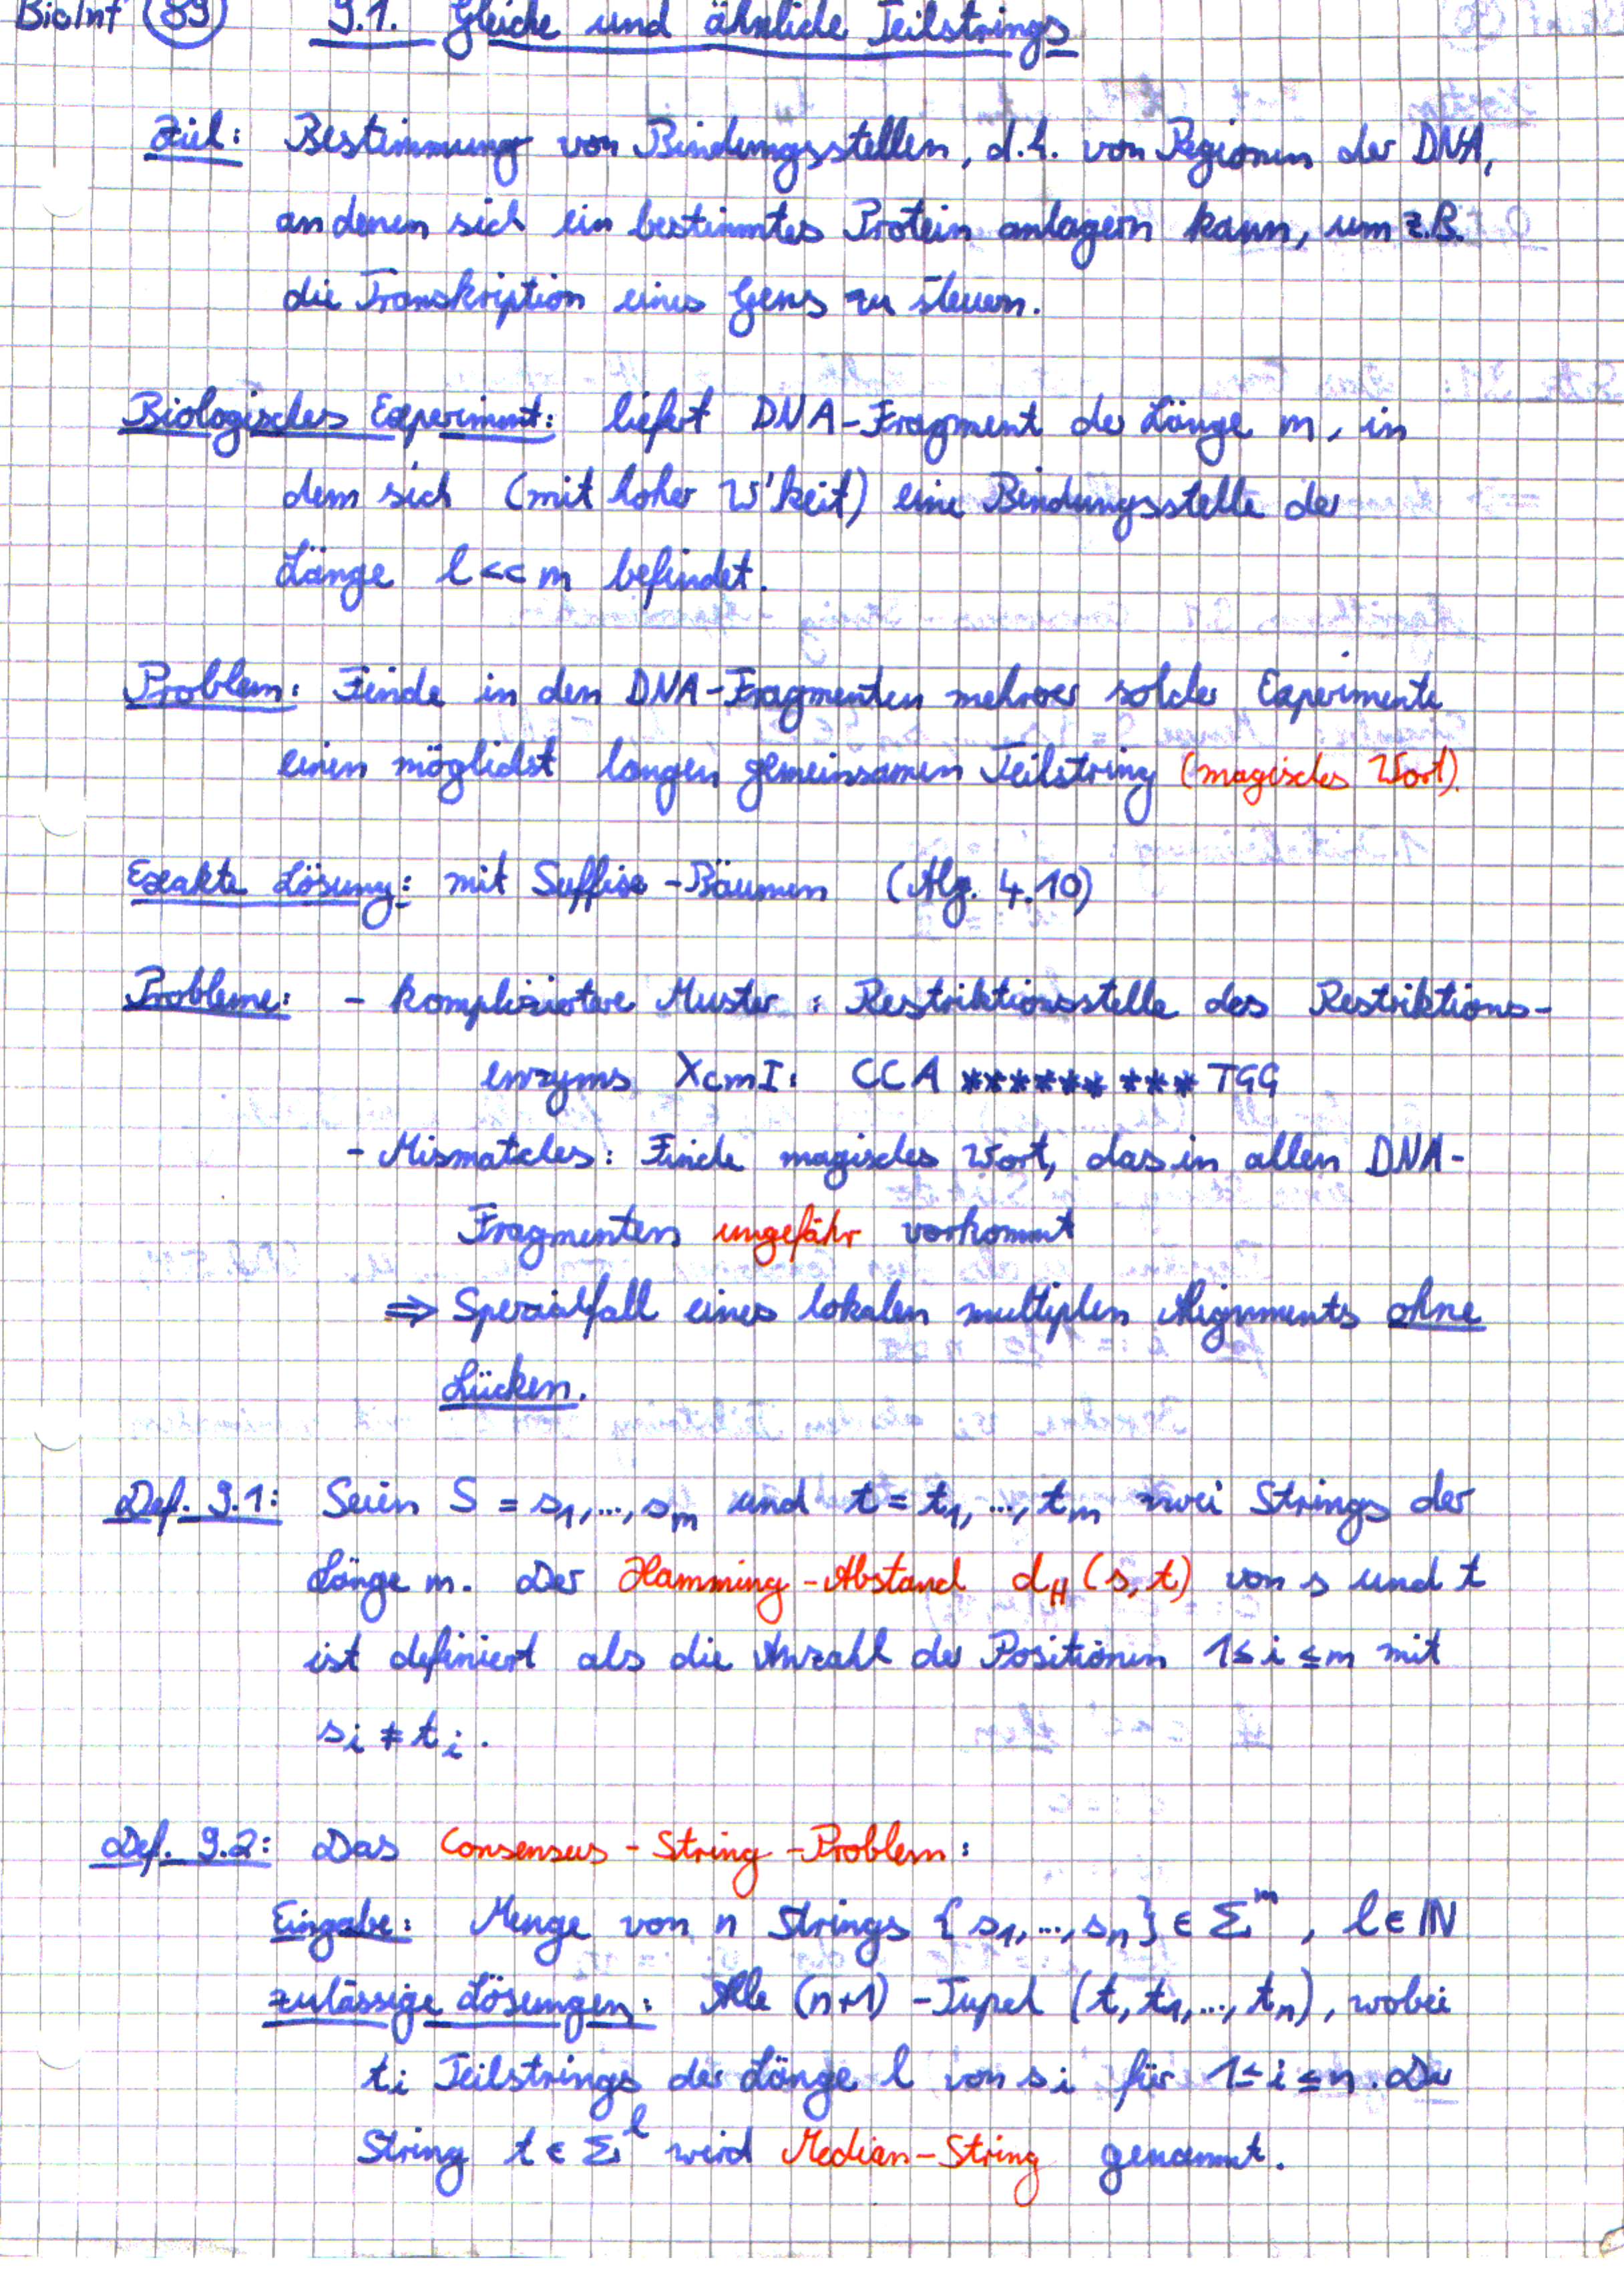 BioInf 89 9.1. Gleiche und ähnliche Teilstrings
Ziel: Bestimmung von Bindungsstellen, d.h. von Regionen der DNA,
an denen sich ein bestimmtes Protein anlagern kann, um z.B.
die Transkription eines Gens zu steuern.
Biologisches Experiment: liefert DNA-Fragment der Länge m, in
dem sich (mit hoher W'keit) eine Bindungsstelle der
Länge l << m befindet.
Problem: Finde in den DNA-Fragmenten mehrerer solcher Experimente
einen möglichst langen gemeinsamen Teilstring (magisches Wort).
Exakte Lösung: mit Suffix-Bäumen (Alg. 4.10)
Probleme: - kompliziertere Muster: Restriktionsstelle des Restriktions-
enzyms XcmI: CCA ********* TGG
- Mismatches: Finde magisches Wort, das in allen DNA-
Fragmenten ungefähr vorkommt
⇒ Spezialfall eines lokalen multiplen Alignments ohne
Lücken.
Def. 9.1: Seien S = s₁,...,sₘ und t = t₁,...,tₘ zwei Strings der
Länge m. Der Hamming-Abstand d_H(s,t) von s und t
ist definiert als die Anzahl der Positionen 1≤i≤m mit
sᵢ ≠ tᵢ.
Def. 9.2: Das Consensus-String-Problem:
Eingabe: Menge von n Strings {s₁,...,sₙ} ∈ Σᵐ, l ∈ ℕ
zulässige Lösungen: Alle (n+1)-Tupel (t,t₁,...,tₙ), wobei
tᵢ Teilstrings der Länge l von sᵢ für 1≤i≤n. Der
String t ∈ Σˡ wird Median-String genannt.